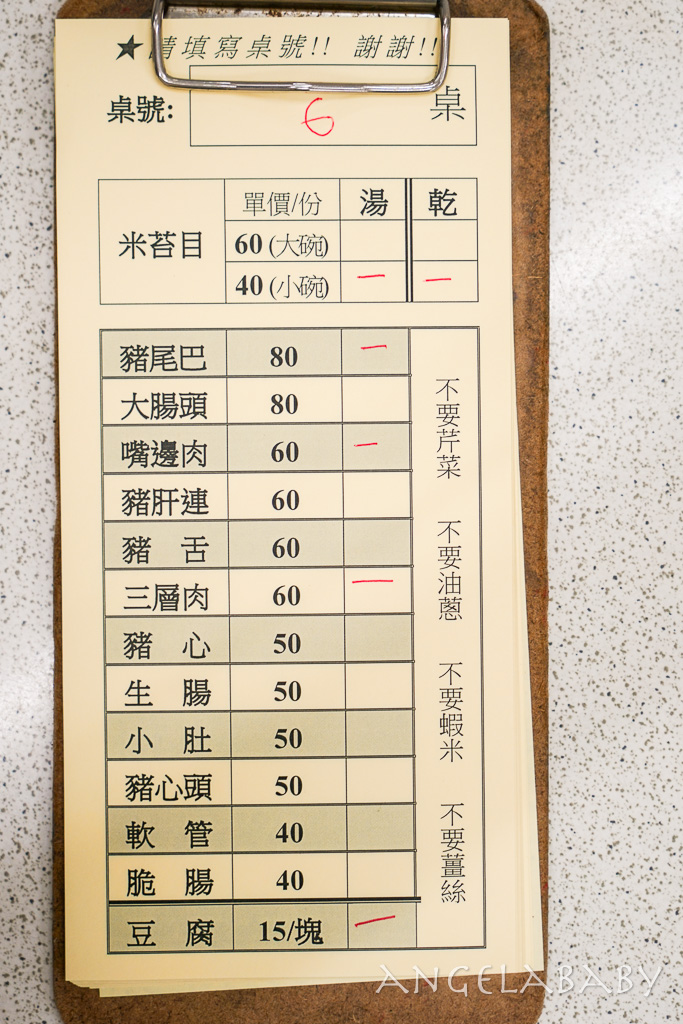 ★請填寫桌號!! 謝謝!!
桌號: 6 桌
米苔目 單價/份 湯 乾
60 (大碗)
40 (小碗) 一 一
豬尾巴 80 一
大腸頭 80
嘴邊肉 60 一
豬肝連 60
豬 舌 60
三層肉 60 一
豬 心 50
生 腸 50
小 肚 50
豬心頭 50
軟 管 40
脆 腸 40
豆 腐 15/塊 一
不要芹菜
不要油蔥
不要蝦米
不要薑絲
ANGELABABY